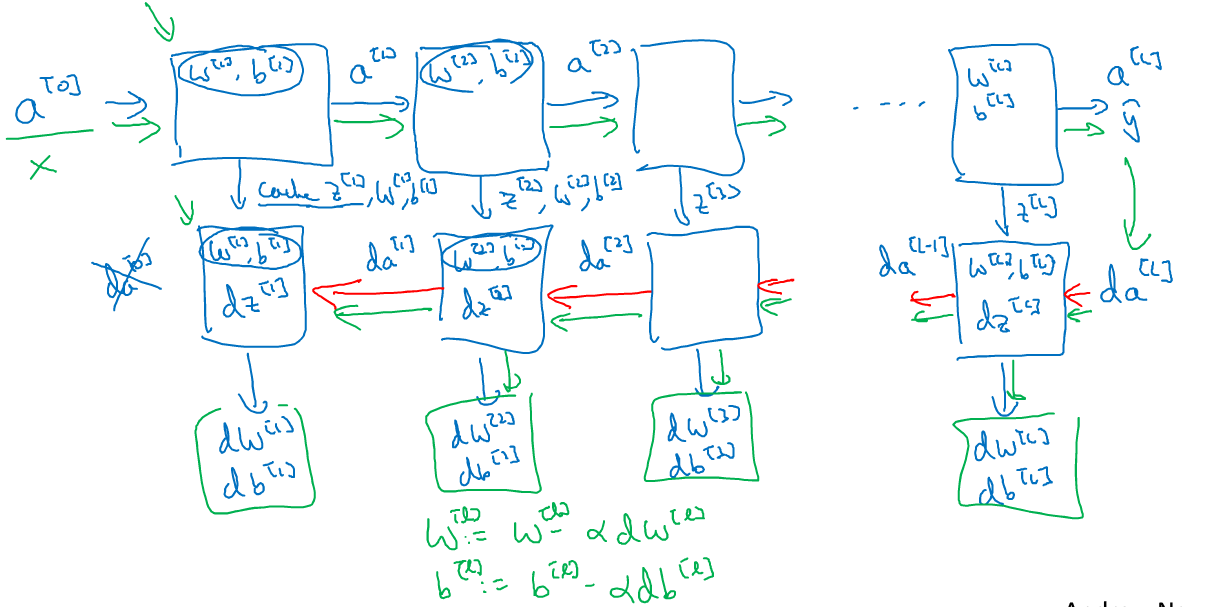 a^[0]
x
w^[1], b^[1]
a^[1]
w^[2], b^[2]
a^[2]
....
w^[L]
b^[L]
a^[L]
ŷ
cache z^[1], w^[1], b^[1]
z^[2], w^[2], b^[2]
z^[3]
z^[L]
da^[0]
w^[1], b^[1]
dz^[1]
da^[1]
w^[2], b^[2]
dz^[2]
da^[2]
da^[L-1]
w^[L], b^[L]
dz^[L]
da^[L]
dw^[1]
db^[1]
dw^[2]
db^[2]
dw^[3]
db^[3]
dw^[L]
db^[L]
w^[l] := w^[l] - α dw^[l]
b^[l] := b^[l] - α db^[l]